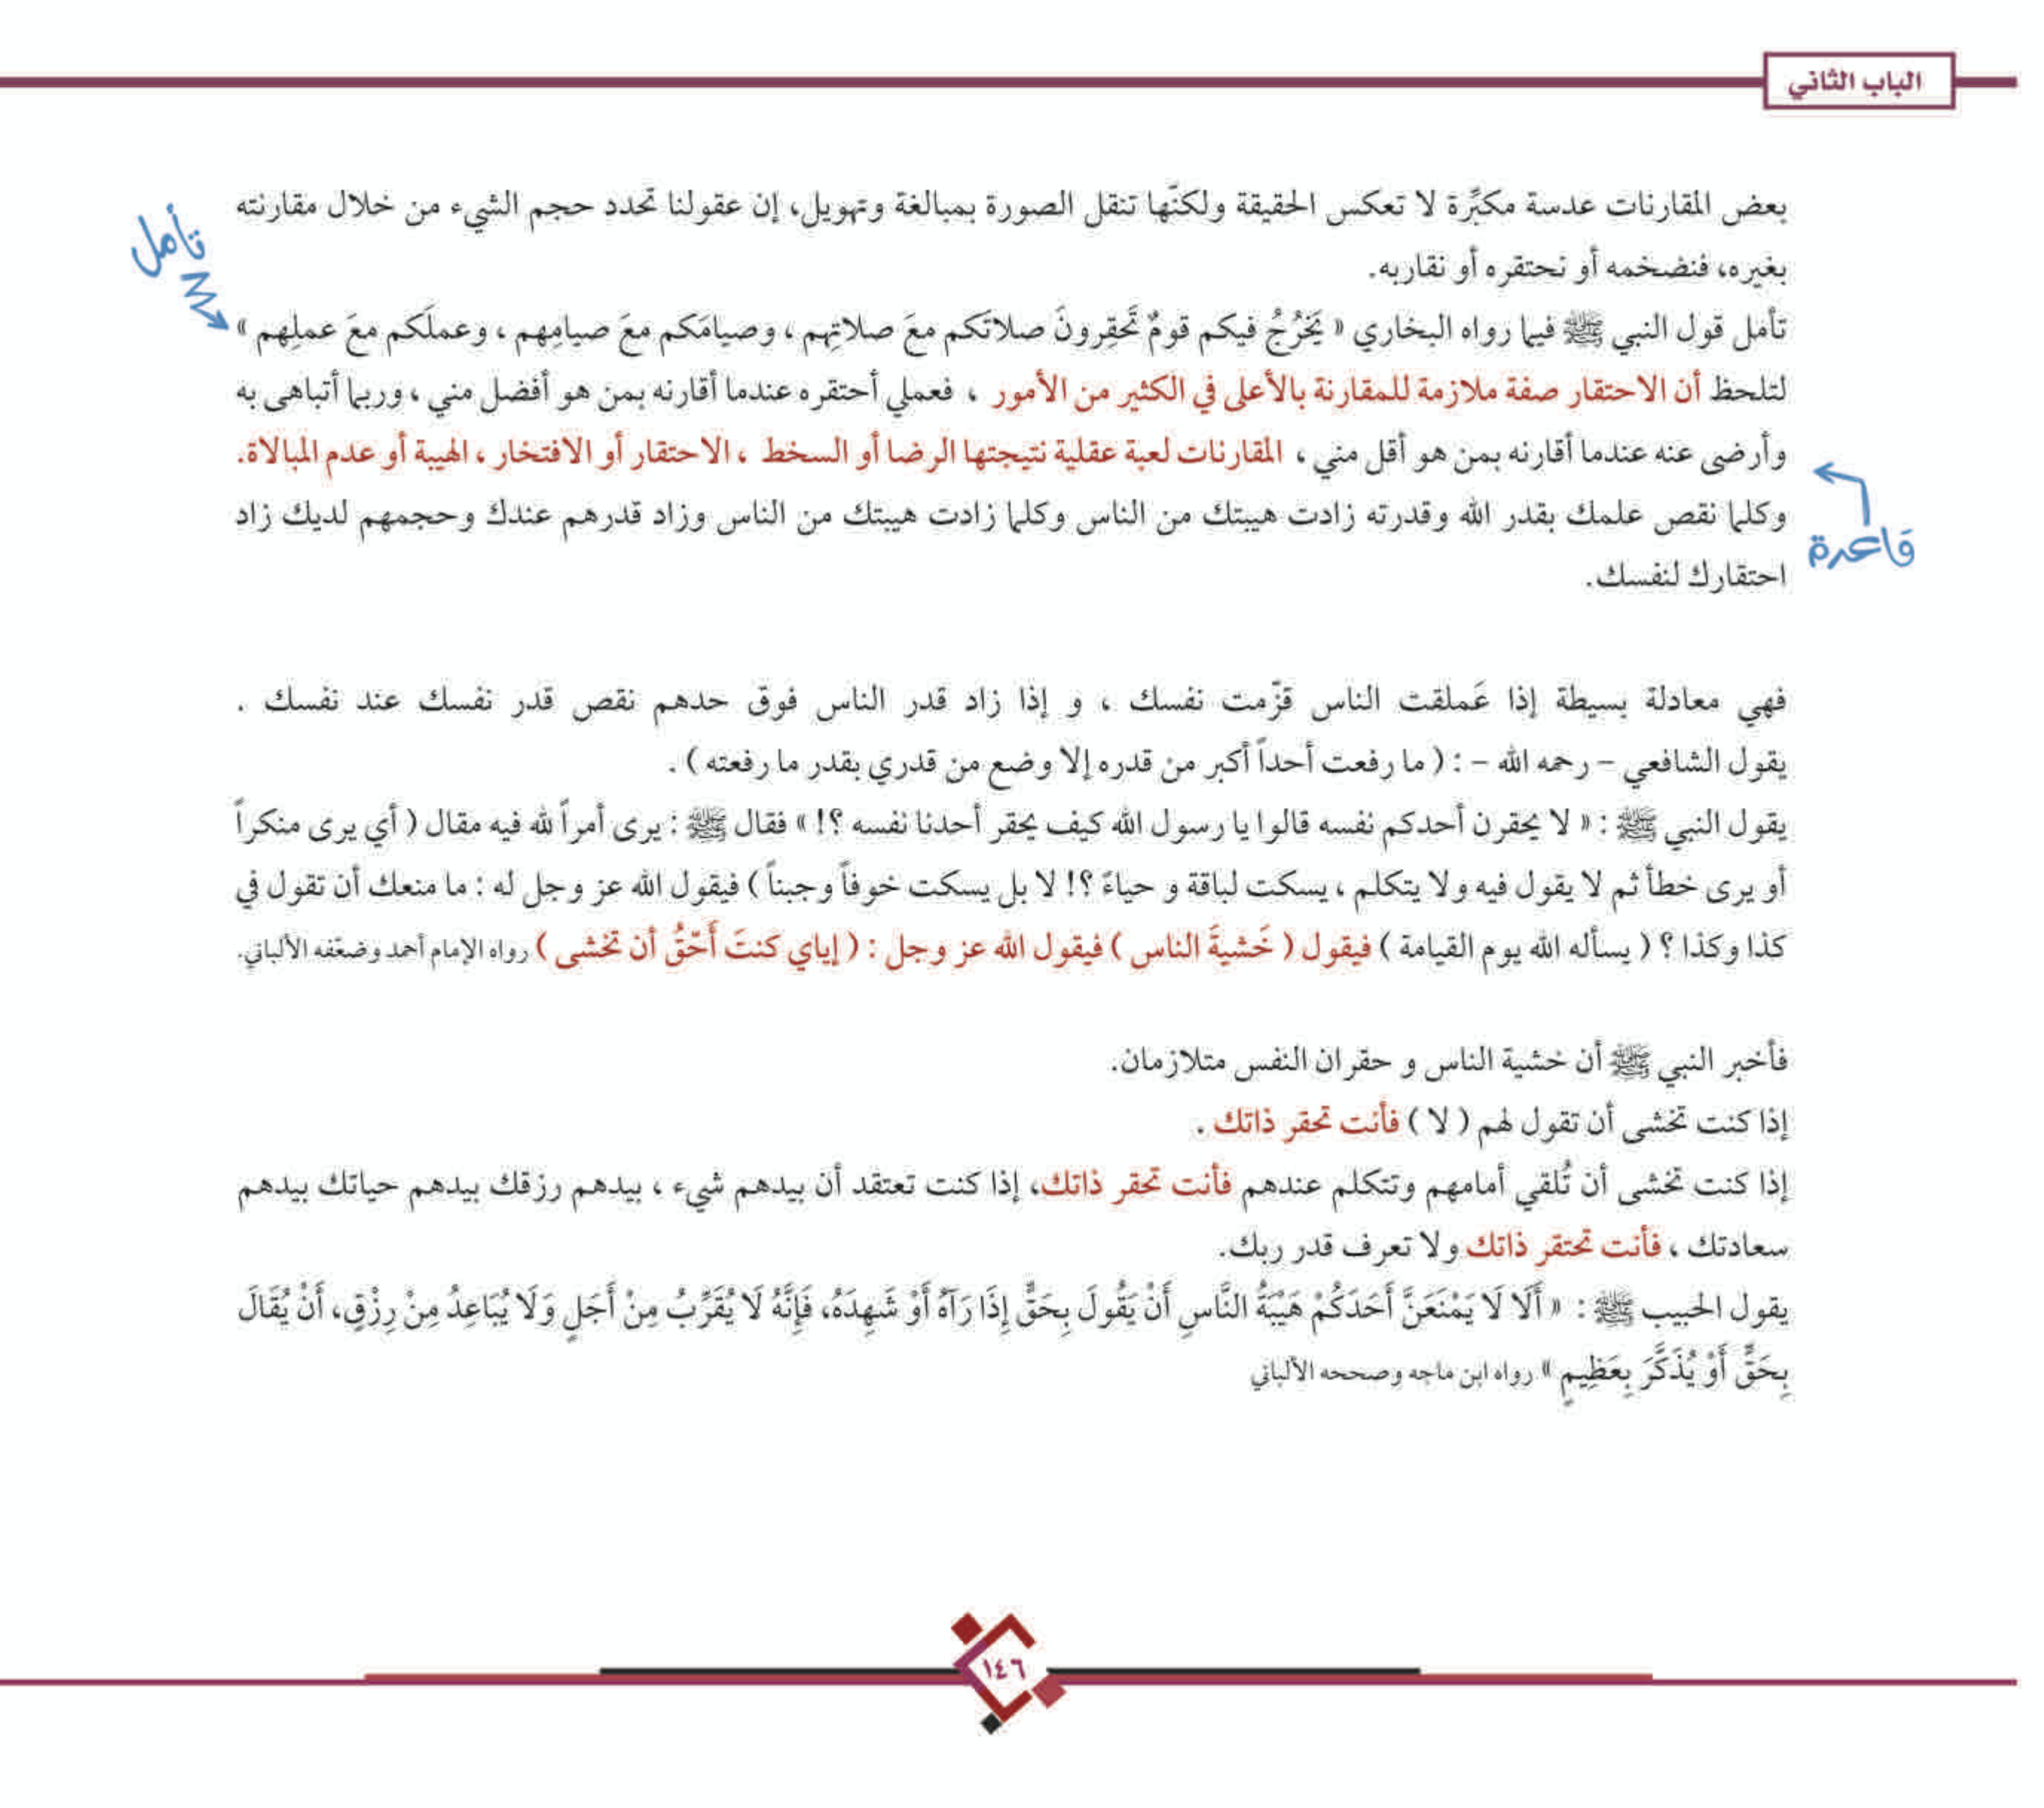 الباب الثاني
بعض المقارنات عدسة مكبِّرة لا تعكس الحقيقة ولكنّها تنقل الصورة بمبالغة وتهويل، إن عقولنا تحدد حجم الشيء من خلال مقارنته
تأمل
بغيره، فنضخمه أو نحتقره أو نقاربه.
تأمل قول النبي ﷺ فيما رواه البخاري « يَخرُجُ فيكم قومٌ تَحقِرونَ صلاتَكم معَ صلاتِهم ، وصيامَكم معَ صيامِهم ، وعملَكم معَ عملِهم »
لتلحظ أن الاحتقار صفة ملازمة للمقارنة بالأعلى في الكثير من الأمور ، فعملي أحتقره عندما أقارنه بمن هو أفضل مني ، وربما أتباهى به
وأرضى عنه عندما أقارنه بمن هو أقل مني ، المقارنات لعبة عقلية نتيجتها الرضا أو السخط ، الاحتقار أو الافتخار ، الهيبة أو عدم المبالاة.
وكلما نقص علمك بقدر الله وقدرته زادت هيبتك من الناس وكلما زادت هيبتك من الناس وزاد قدرهم عندك وحجمهم لديك زاد
قاعدة
احتقارك لنفسك.
فهي معادلة بسيطة إذا عَملقت الناس قزّمت نفسك ، و إذا زاد قدر الناس فوق حدهم نقص قدر نفسك عند نفسك .
يقول الشافعي – رحمه الله – : ( ما رفعت أحداً أكبر من قدره إلا وضع من قدري بقدر ما رفعته ) .
يقول النبي ﷺ : « لا يحقرن أحدكم نفسه قالوا يا رسول الله كيف يحقر أحدنا نفسه ؟! » فقال ﷺ : يرى أمراً لله فيه مقال ( أي يرى منكراً
أو يرى خطأ ثم لا يقول فيه ولا يتكلم ، يسكت لباقة و حياءً ؟! لا بل يسكت خوفاً وجبناً ) فيقول الله عز وجل له : ما منعك أن تقول في
كذا وكذا ؟ ( يسأله الله يوم القيامة ) فيقول ( خَشيةَ الناس ) فيقول الله عز وجل : ( إياي كنتَ أَحّقُ أن تخشى ) رواه الإمام أحمد وضعّفه الألباني.
فأخبر النبي ﷺ أن خشية الناس و حقران النفس متلازمان.
إذا كنت تخشى أن تقول لهم ( لا ) فأنت تحقر ذاتك .
إذا كنت تخشى أن تُلقي أمامهم وتتكلم عندهم فأنت تحقر ذاتك، إذا كنت تعتقد أن بيدهم شيء ، بيدهم رزقك بيدهم حياتك بيدهم
سعادتك ، فأنت تحتقر ذاتك ولا تعرف قدر ربك.
يقول الحبيب ﷺ : « أَلَا لَا يَمْنَعَنَّ أَحَدَكُمْ هَيْبَةُ النَّاسِ أَنْ يَقُولَ بِحَقٍّ إِذَا رَآهُ أَوْ شَهِدَهُ، فَإِنَّهُ لَا يُقَرِّبُ مِنْ أَجَلٍ وَلَا يُبَاعِدُ مِنْ رِزْقٍ، أَنْ يُقَالَ
بِحَقٍّ أَوْ يُذَكَّرَ بِعَظِيمٍ » رواه ابن ماجه وصححه الألباني
١٤٦